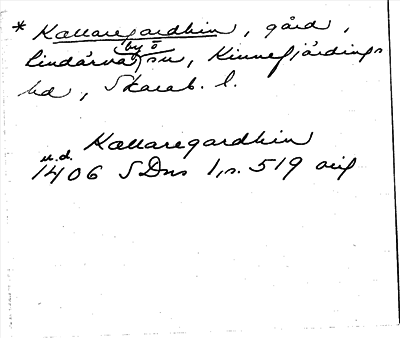 * Kallaregardhin, gård,
by ö
Lindärva sn, Kinnefjärdings
hd, Skarab. l.
Kallaregardhin
u.d.
1406 SDns 1, s. 519 orig